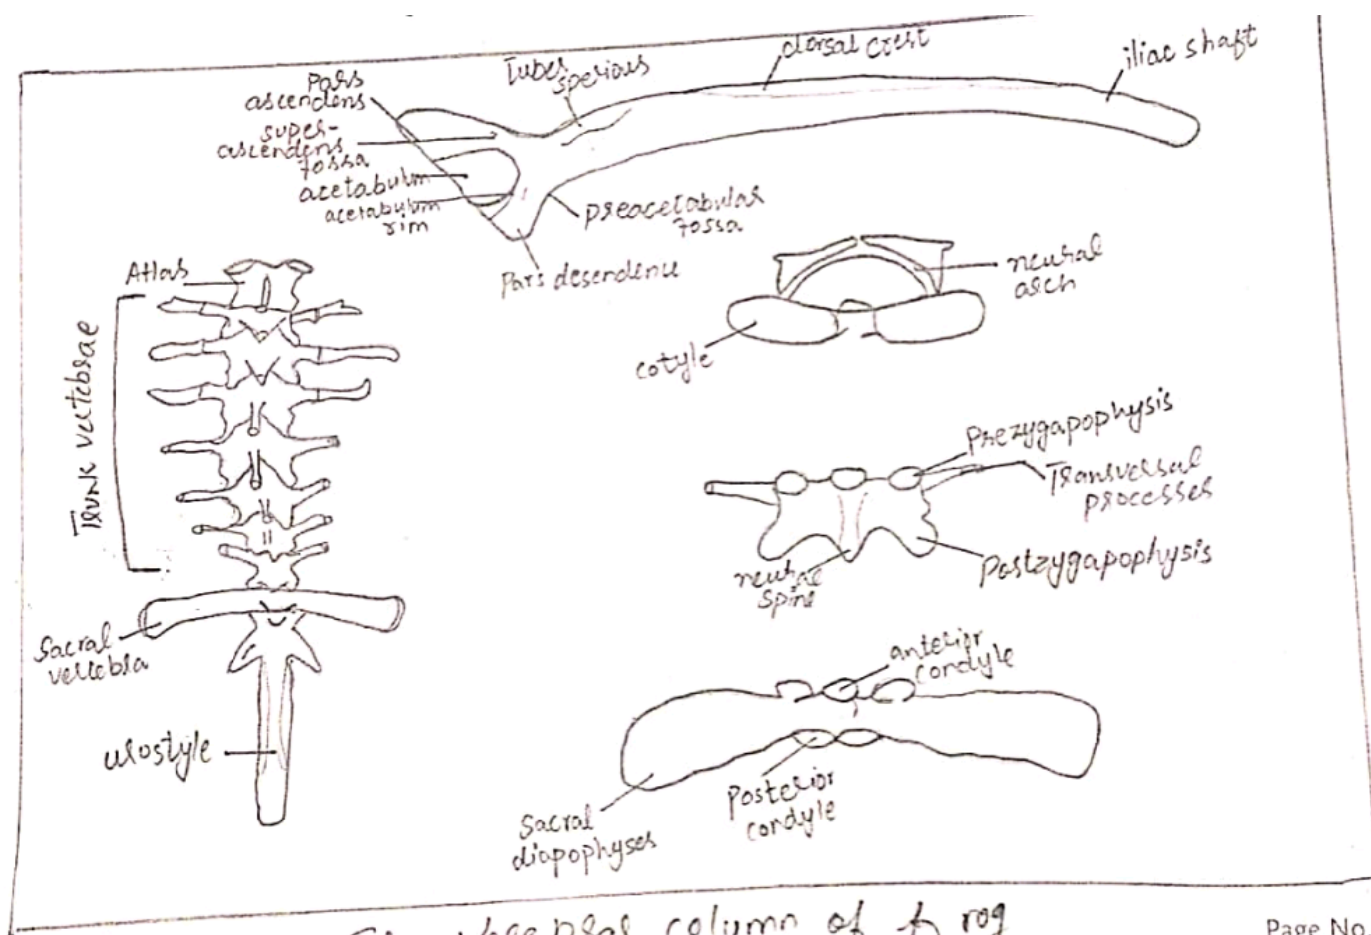 Pars
ascendens
super-
ascendens
fossa
acetabulum
acetabulum
rim
Tuber
sperious
dorsal crest
iliac shaft
preacetabular
fossa
Pars desendence
Atlas
Trunk vertebrae
Sacral
vertebra
urostyle
neural
arch
cotyle
Prezygapophysis
Transversal
processes
Postzygapophysis
neural
spine
anterior
condyle
Posterior
condyle
Sacral
diapophyses
column of frog
Page No